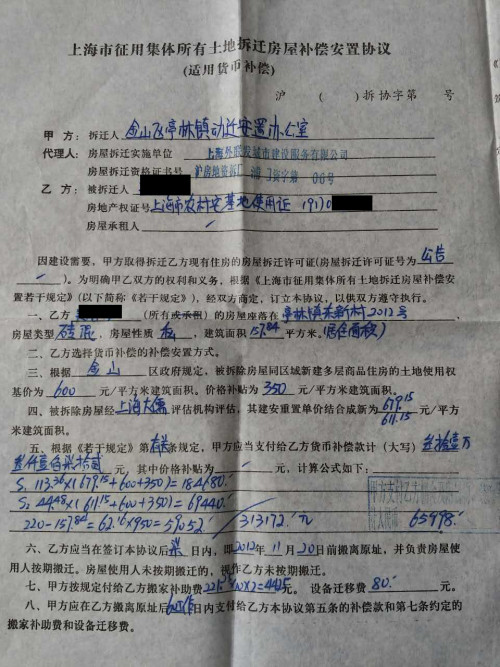 上海市征用集体所有土地拆迁房屋补偿安置协议
(适用货币补偿)
沪 ( )拆协字第 号
甲 方: 拆迁人 金山区亭林镇动迁安置办公室
代理人: 房屋拆迁实施单位 上海外联发城市建设服务有限公司
房屋拆迁资格证书号 沪房地资拆 字第 06号
乙 方: 被拆迁人
房地产权证号 上海市农村宅基地使用证 1910
房屋承租人
因建设需要,甲方取得拆迁乙方现有住房的房屋拆迁许可证(房屋拆迁许可证号为 公告
)。为明确甲乙双方的权利和义务,根据《上海市征用集体所有土地拆迁房屋补偿安
置若干规定》(以下简称《若干规定》),经双方商定,订立本协议,以供双方遵守执行。
一、乙方 (所有或承租)的房屋座落在 亭林镇东新村2012号,
房屋类型 砖混,房屋性质 私,建筑面积 157.84 平方米。(居住面积)
二、乙方选择货币补偿的补偿安置方式。
三、根据 金山 区政府规定,被拆除房屋同区域新建多层商品住房的土地使用权
基价为 600 元/平方米建筑面积。价格补贴为 350 元/平方米建筑面积。
四、被拆除房屋经 上海大儒 评估机构评估,其建安重置单价结合成新为 679.15 611.15 元/平方
米建筑面积。
五、根据《若干规定》第 有关 条规定,甲方应当支付给乙方货币补偿款计(大写) 叁拾壹万
叁仟壹佰柒拾贰 元,其中价格补贴为 元,计算公式如下:
S₁ 113.36×(679.15+600+350)=184680.
S₂ 44.48×(611.15+600+350)=69440.
220-157.84=62.16×950=59052. 313172.元
65998.
六、乙方应当在签订本协议后 柒 日内,即2012年 11 月 20 日前搬离原址,并负责房屋使
用人按期搬迁。房屋使用人未按期搬迁的,视作乙方未按期搬迁。
七、甲方按规定付给乙方搬家补助费 元。 设备迁移费 80. 元。
八、甲方应在乙方搬离原址后 日内支付给乙方本协议第五条的补偿款和第七条约定的
搬家补助费和设备迁移费。